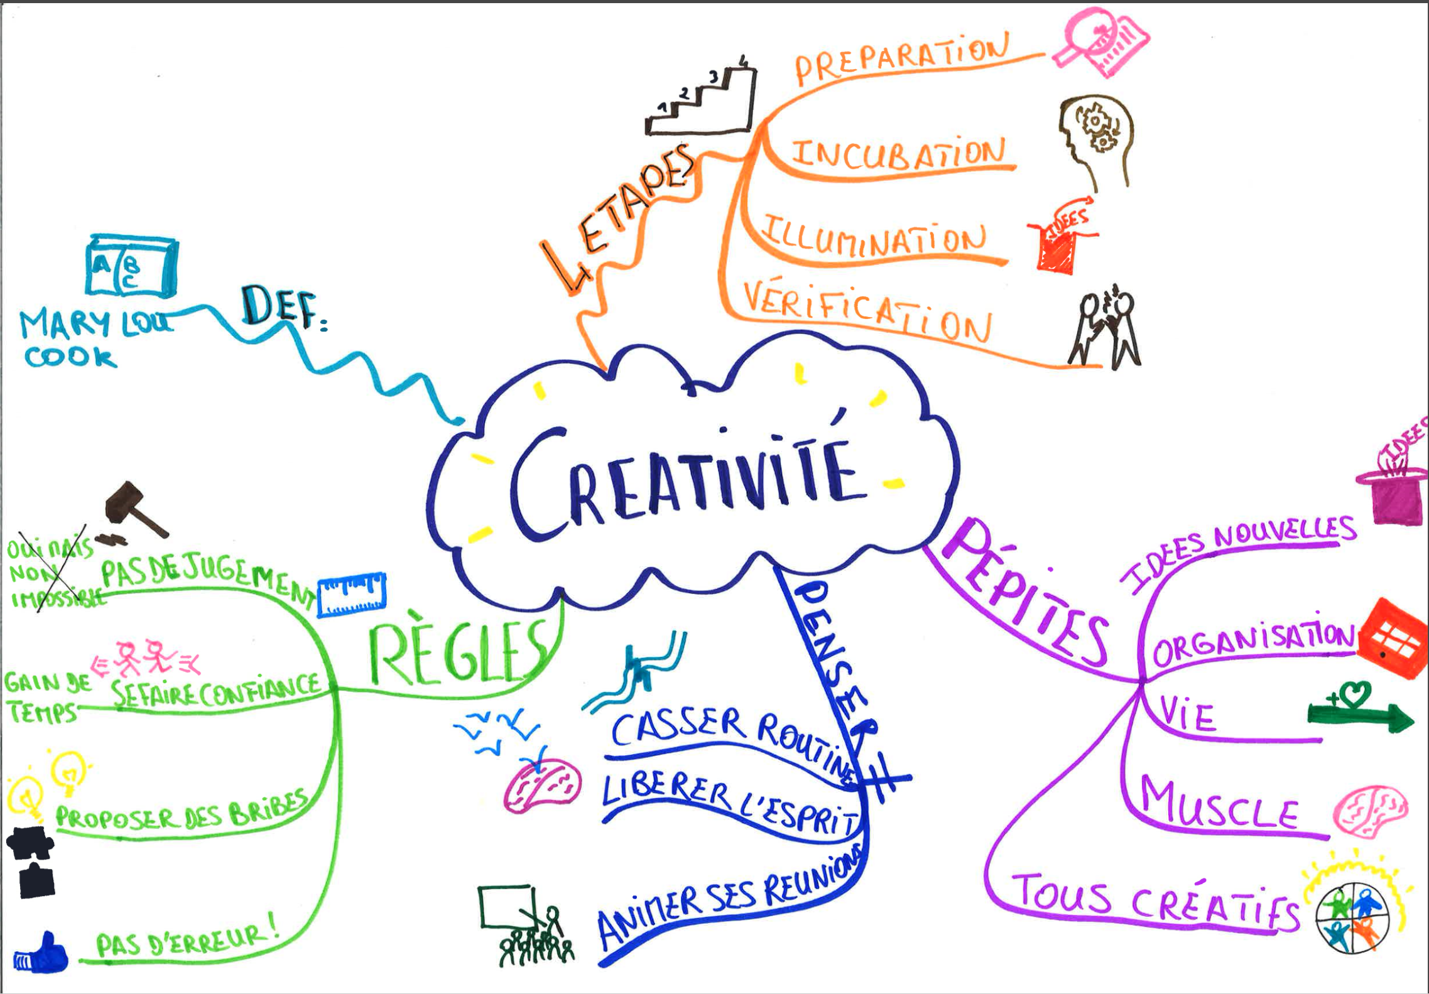 CREATIVITÉ
4 ETAPES
1 2 3 4
PREPARATION
INCUBATION
ILLUMINATION
IDEES
VÉRIFICATION
DEF:
A B
C
MARY LOU
COOK
PÉPITES
IDEES NOUVELLES
IDEES
ORGANISATION
ViE
+
MUSCLE
TOUS CRÉATIFS
PENSER ≠
CASSER ROUTINE
LIBERER L'ESPRIT
ANIMER SES REUNIONS
RÈGLES
PAS DE JUGEMENT
OUI MAIS
NON
IMPOSSIBLE
SE FAIRE CONFIANCE
GAIN DE
TEMPS
PROPOSER DES BRIBES
PAS D'ERREUR!